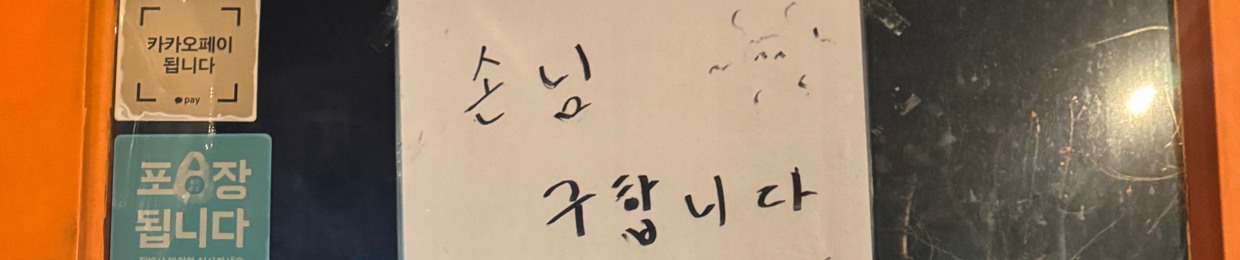 카카오페이
됩니다
pay
포장
됩니다
손님
구합니다